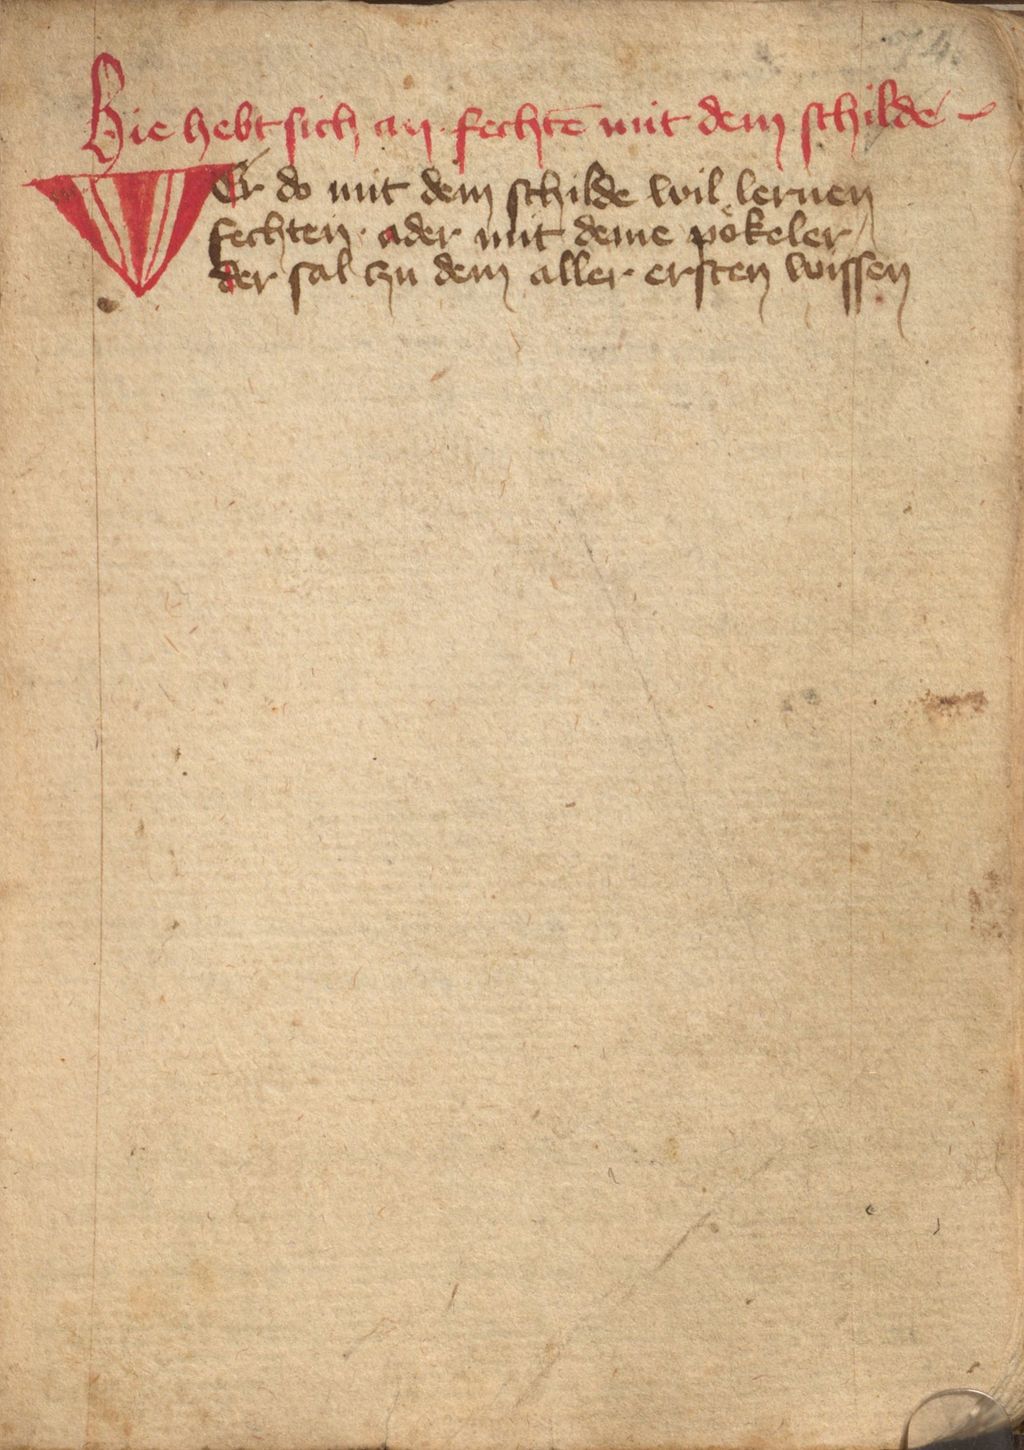 74.
Hie hebt sich an · fechtē mit dem schilde –
WEr do mit dem schilde wil lernen
fechten · ader mit deme pökeler /
der sal czu dem aller ersten wissen